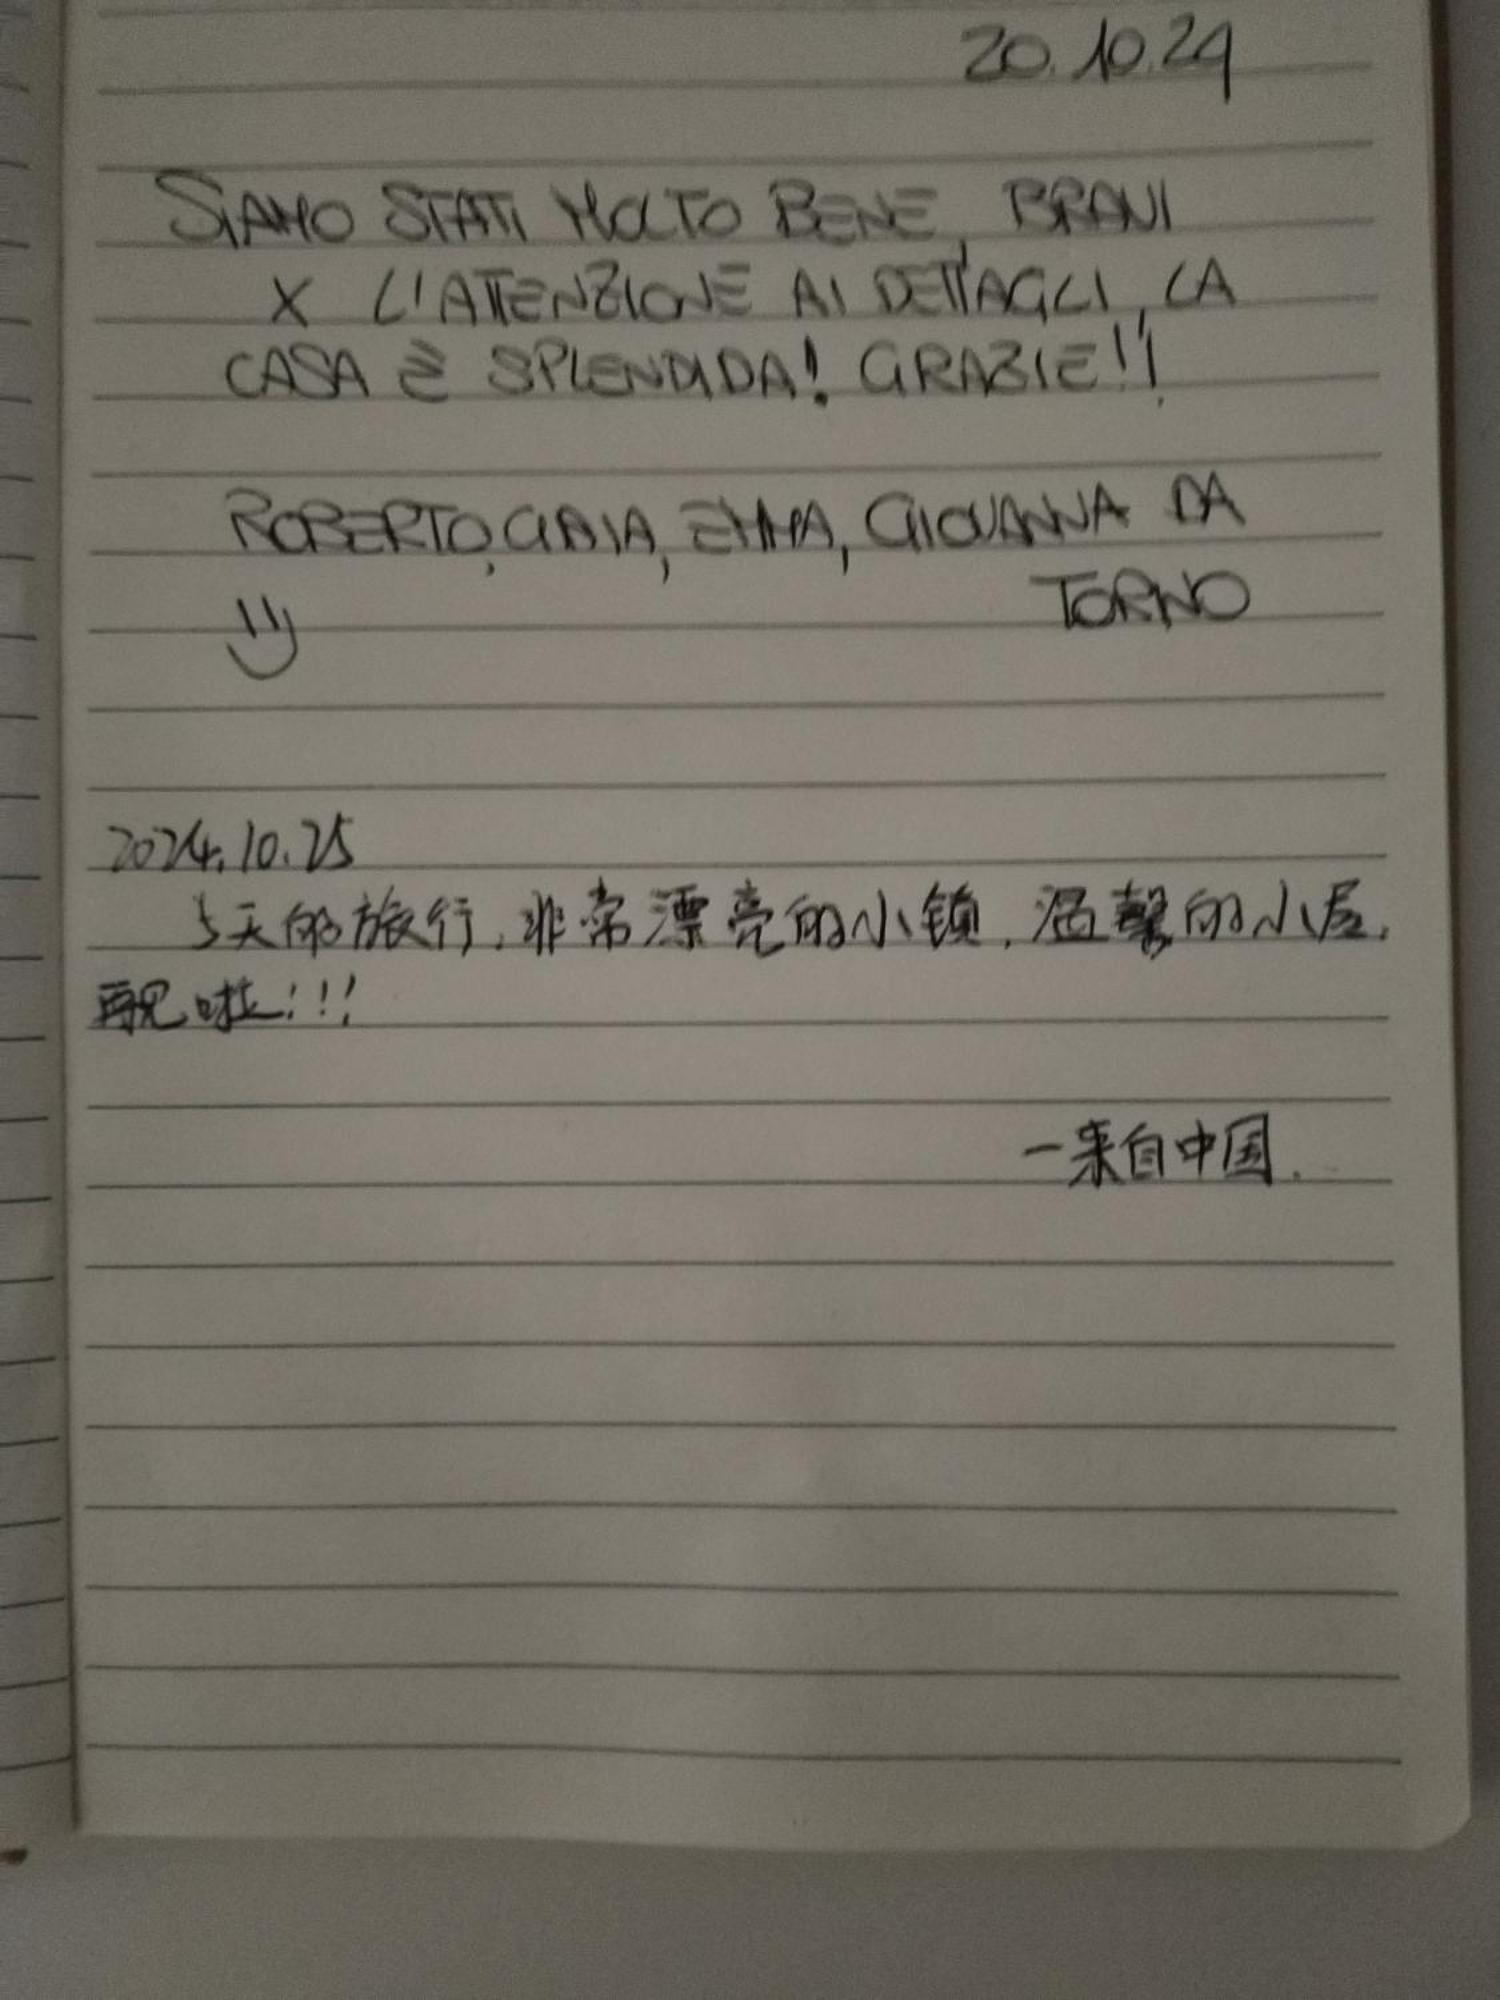 20.10.24
SIAMO STATI MOLTO BENE, BRAVI
X L'ATTENZIONE AI DETTAGLI, LA
CASA È SPLENDIDA! GRAZIE!!
ROBERTO, GAIA, EMMA, GIOVANNA DA
TORNO
2024.10.25
5天的旅行,非常漂亮的小镇,温馨的小屋.
再见啦!!!
一来自中国.